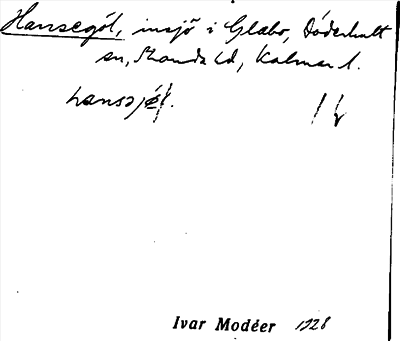 Hansegöl, insjö i Glabo, Döderhult
sn, Stranda hd, Kalmar l.
hansəjø̄l.
Ivar Modéer 1928